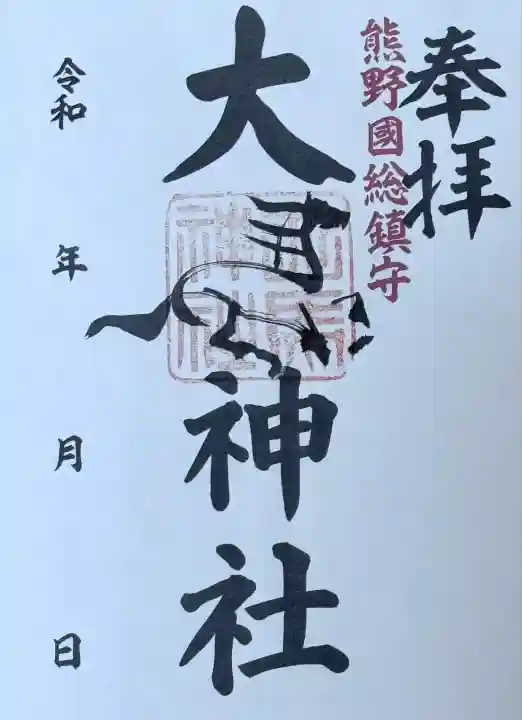 奉拝
熊野國総鎮守
大馬神社
令和 年 月 日